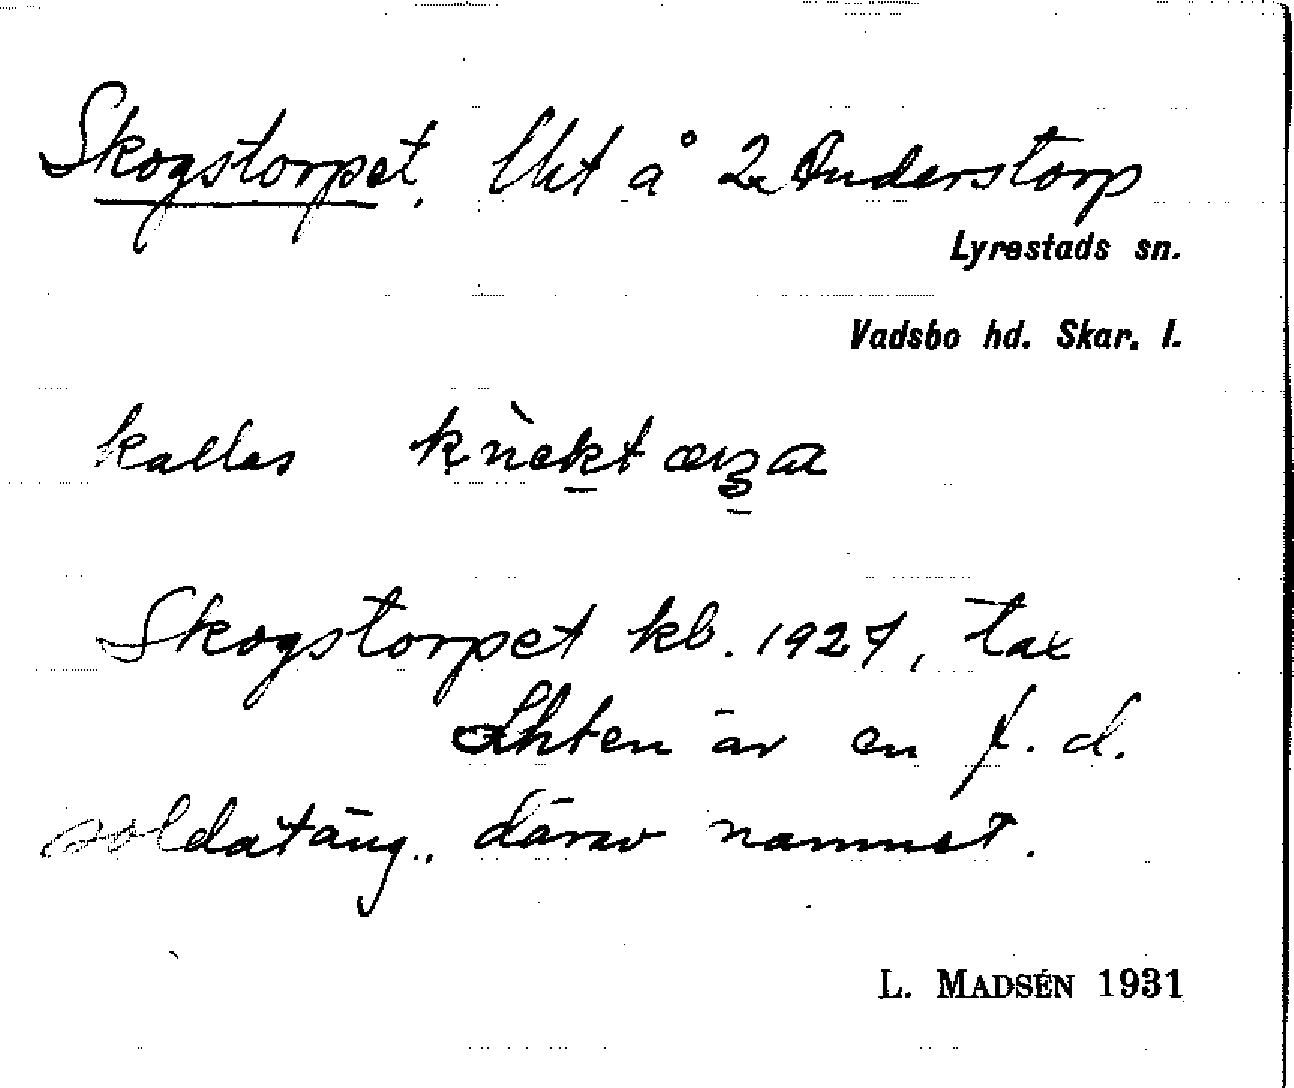 Skogstorpet. Lht å 2 Anderstorp
Lyrestads sn.
Vadsbo hd. Skar. l.
kallas
Skogstorpet kb. 1927, tax
Lhten är en f. d.
soldatäng., därav namnet.
L. MADSÉN 1931